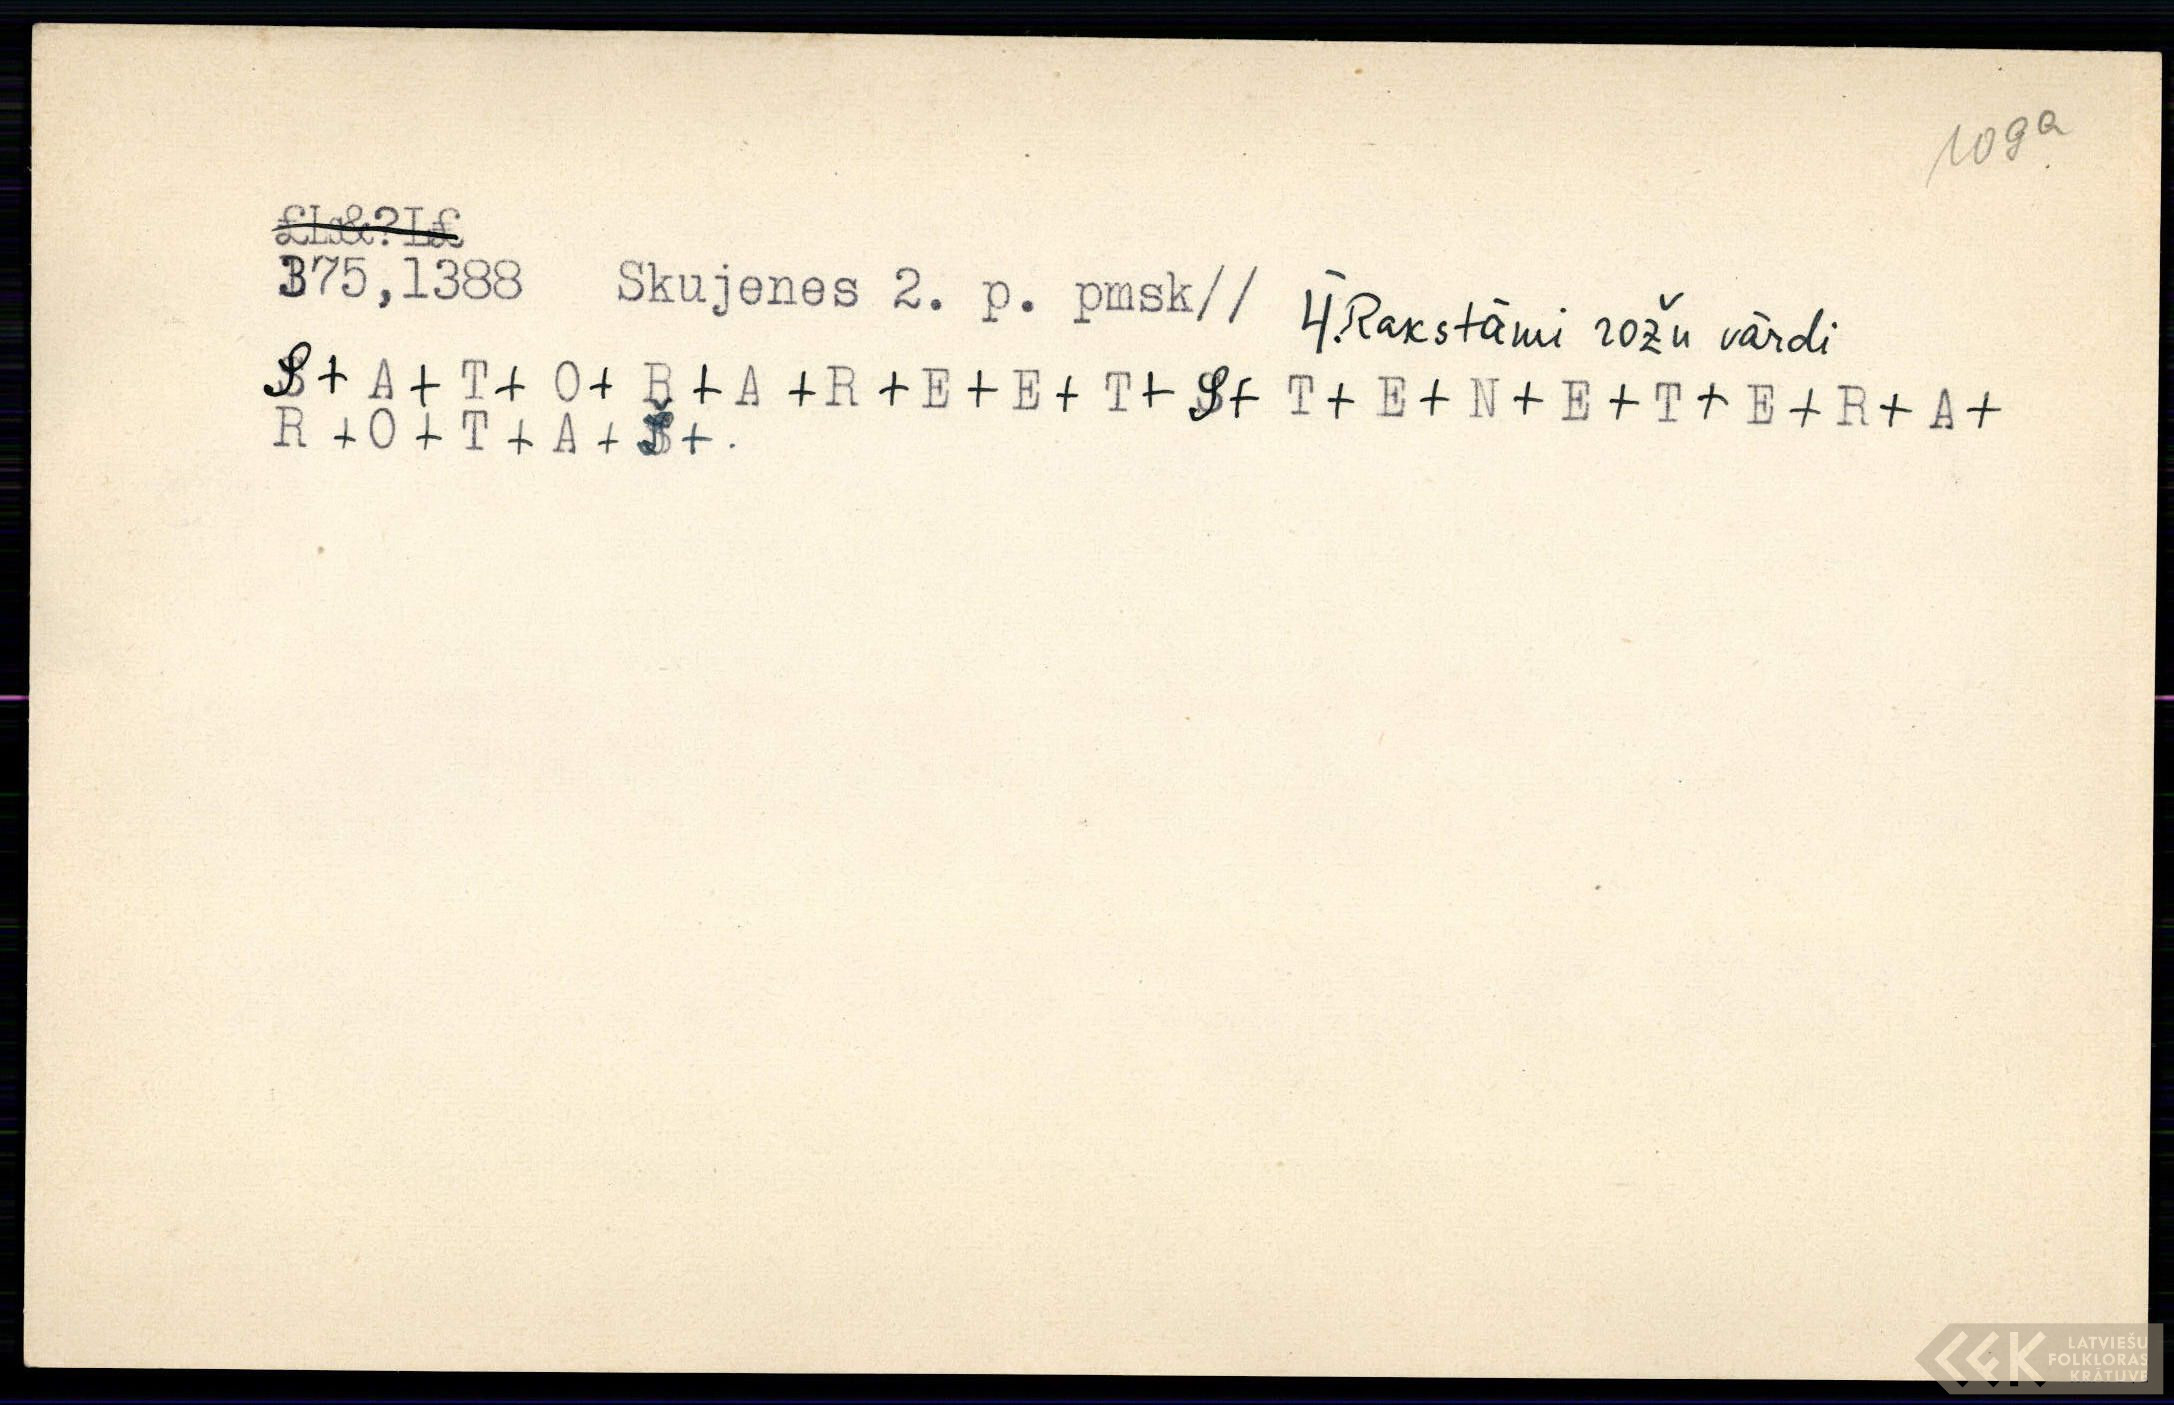 10ga
£Ls&?L£
375,1388 Skujenes 2. p. pmsk// 4. Rakstāmi rožu vārdi
S+ A+ T+ O+ R+A +R+E+E+ T+ S+ T+ E+N+E+T+E+R+A+
R+O+T+A+Š+.
LATVIEŠU
FOLKLORAS
KRĀTUVE